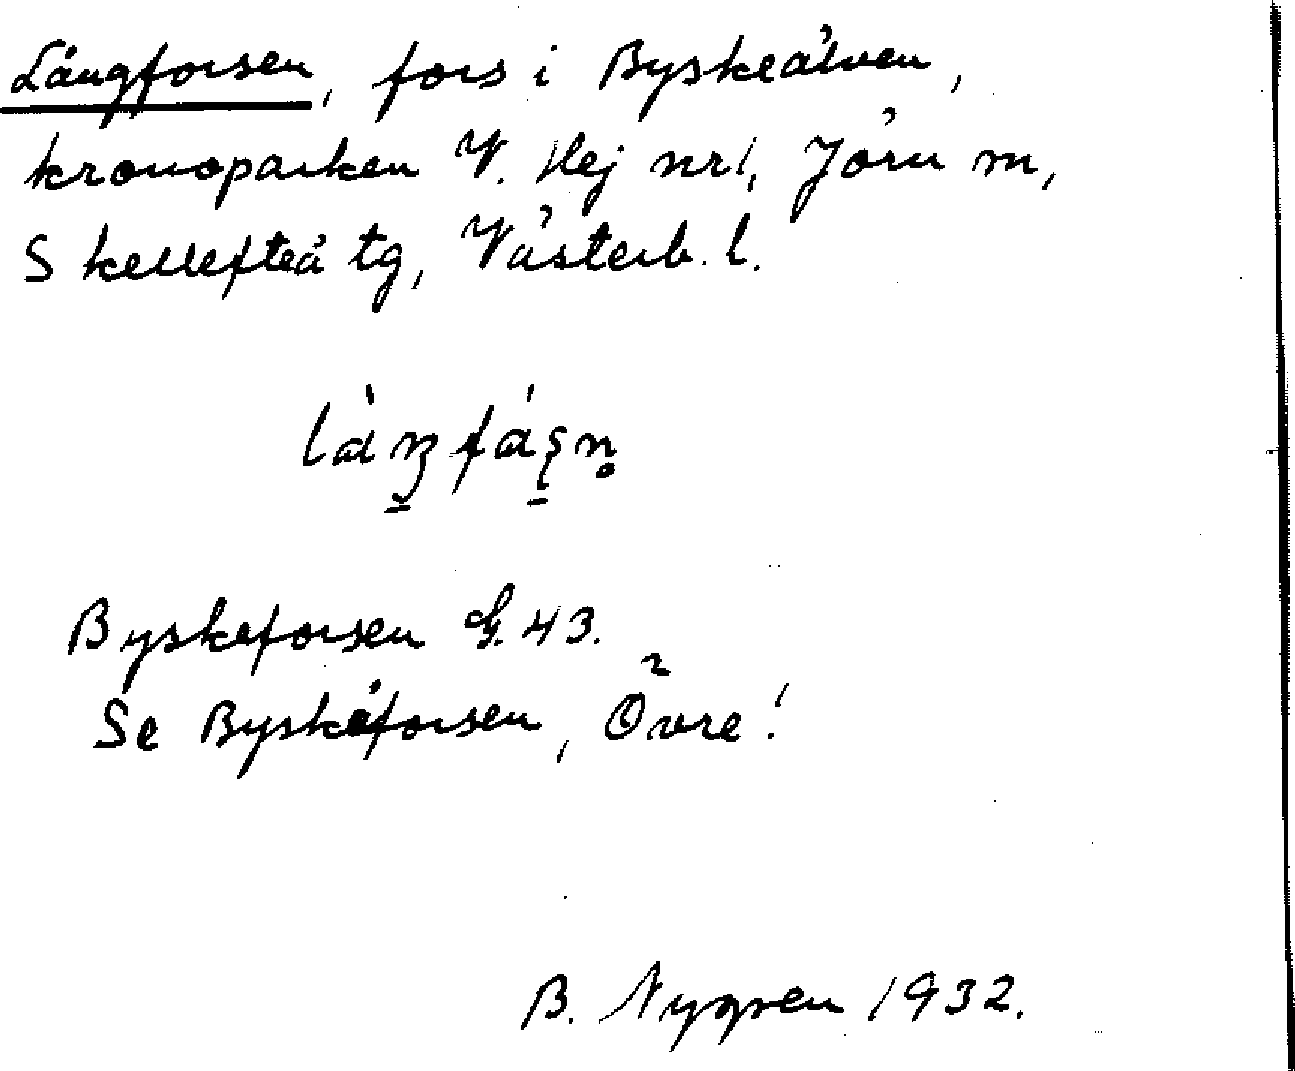 Långforsen, fors i Byskeälven,
kronoparken V. Hej nr 1, Jörn m,
Skellefteå tg, Västerb. l.
Byskeforsen G. 43.
Se Byskeforsen, Övre!
B. Nygren 1932.